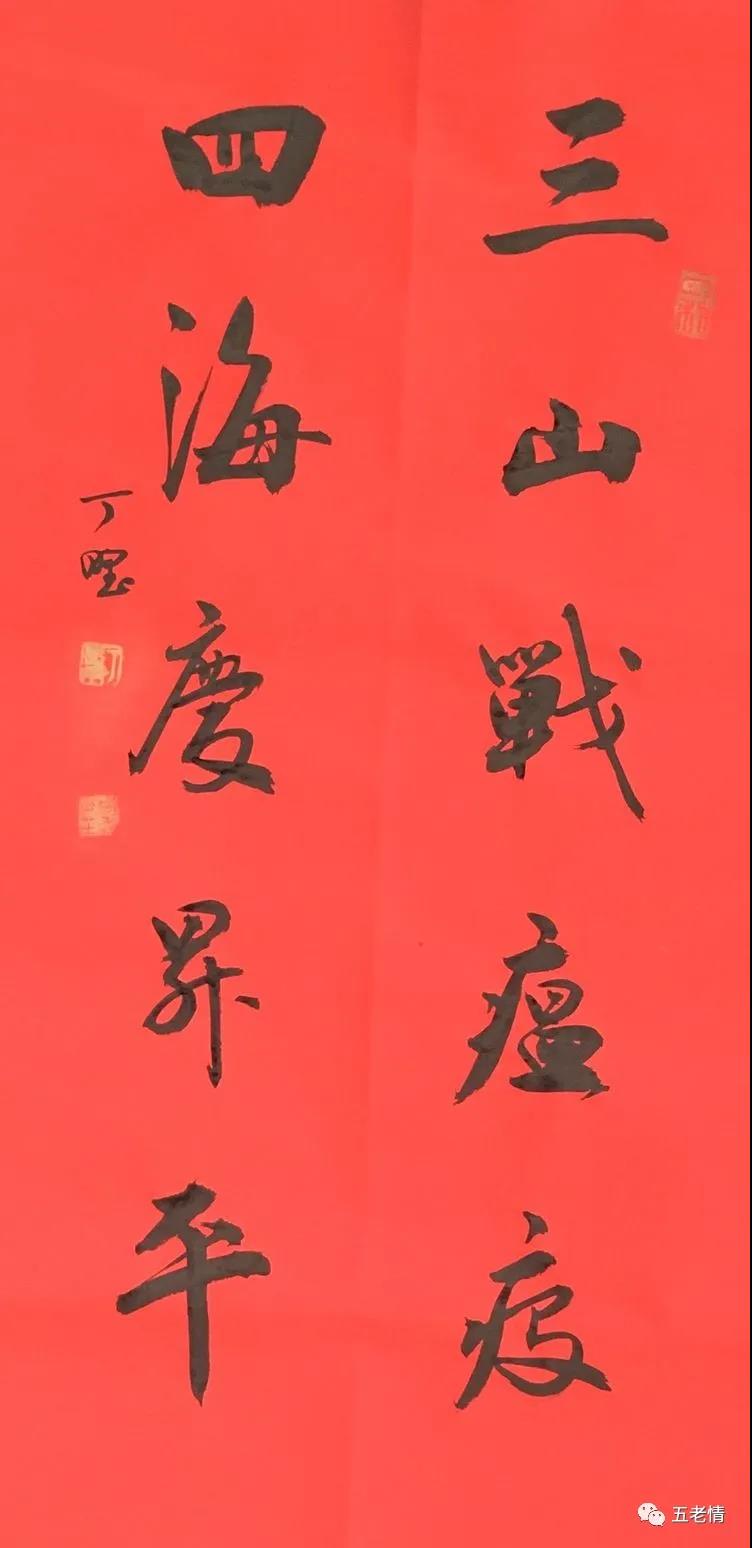 三山戰瘟疫
四海慶昇平
丁
五老情